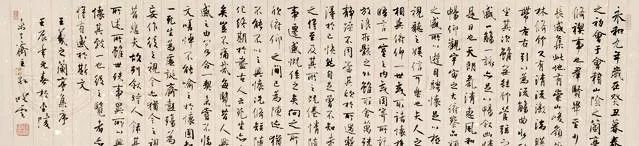 永和九年歲在癸丑暮春
之初會于會稽山陰之蘭亭
脩禊事也羣賢畢至少
長咸集此地有崇山峻領茂
林脩竹又有清流激湍暎
帶左右引以為流觴曲水列
坐其次雖無絲竹管弦之
盛一觴一詠亦足以暢敘幽情
是日也天朗氣清惠風和
暢仰觀宇宙之大俯察品類
之盛所以遊目騁懷足以極
視聽之娛信可樂也夫人之
相與俯仰一世或取諸懷抱
晤言一室之內或因寄所託
放浪形骸之外雖趣舍萬殊
靜躁不同當其欣於所遇
得於己快然自足不知老
之將至及其所之既倦情隨
事遷感慨係之矣向之所
欣俛仰之間已為陳迹猶
不能不以之興懷況脩短隨
化終期於盡古人云死生
亦大矣豈不痛哉每攬昔人
興感之由若合一契未嘗不臨
文嗟悼不能喻之於懷固知
一死生為虛誕齊彭殤為
妄作後之視今亦猶今之視
昔悲夫故列敘時人錄其
所述雖世殊事異所以興
懷其致一也後之覽者亦
將有感於斯文
王羲之蘭亭集序